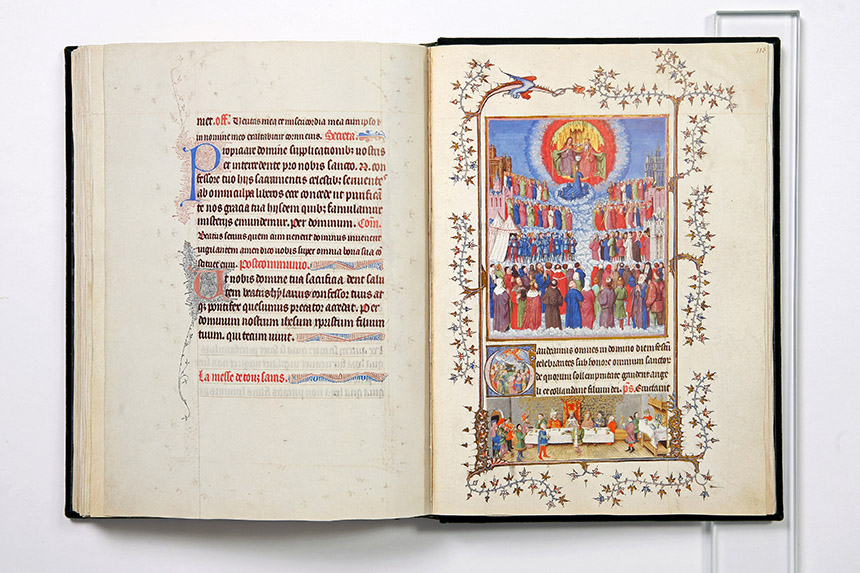 niet. off. Veritas mea et misericordia mea cum ipso &
in nomine meo exaltabitur cornu eius. Secreta.
Propiciare domine supplicationib; nostris
et intercedente pro nobis sancto. N. con
fessore tuo hiis sacramentis celestib; seruientes
ab omni culpa liberos esse concede ut purifican
te nos gracia tua hiisdem quib; famulamur
misteriis emundemur. Per dominum. Com̄.
Beatus seruus quem cum uenerit dominus inuenerit
uigilantem amen dico uobis super omnia bona sua co
Postcommunio.
Ut nobis domine tua sacrificia dent salu
tem beatus hylarius confessor tuus at
q; pontifex quesumus precator accedat. Per
dominum nostrum ihesum xpristum filium
tuum. qui tecum uiuit.
La messe de tous sains.
115
Gaudeamus omnes in domino diem festū
celebrantes sub honore omnium sanctor
de quorum sollempnitate gaudent ange
li et collaudant filium dei. p̄s. Eructauit